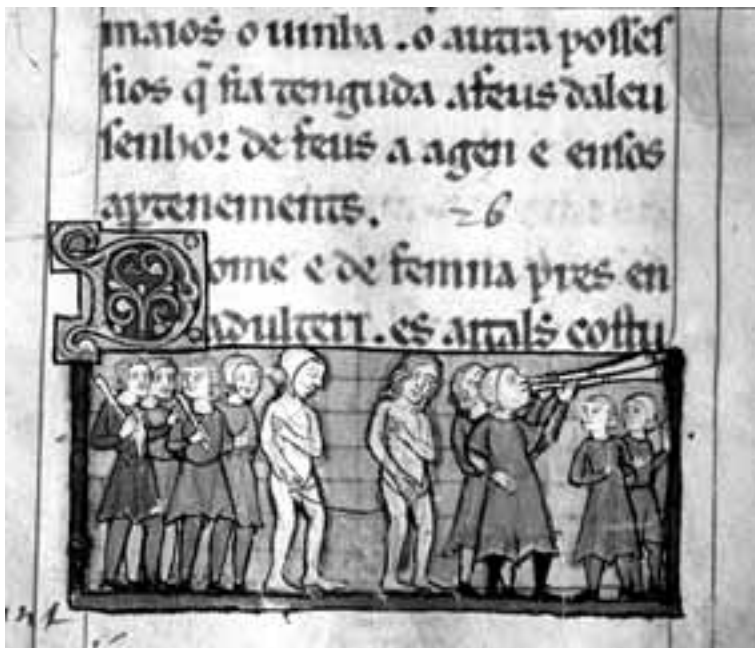 maios o uinha . o autra posses
sios q̄ sia tenguda afeus daleu
senhor de feus a agen e ensos
apertenements. 26
Dome e de femna pres en
adulteri . es aitals costu